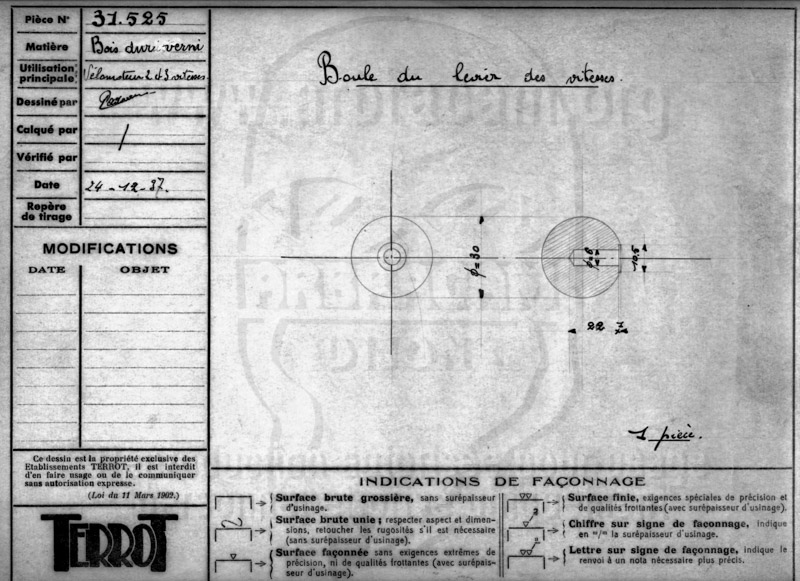 Pièce N° 31.525
Matière Bois dur verni
Utilisation principale Vélomoteur 2 et 3 vitesses.
Dessiné par
Calqué par /
Vérifié par
Date 24-12-37.
Repère de tirage
MODIFICATIONS
DATE OBJET
Boule du levier des vitesses.
ϕ=30
ϕ=8
10,5
22 7
1 pièce.
Ce dessin est la propriété exclusive des
Etablissements TERROT, il est interdit
d'en faire usage ou de le communiquer
sans autorisation expresse.
(Loi du 11 Mars 1902.)
TERROT
INDICATIONS DE FAÇONNAGE
Surface brute grossière, sans surépaisseur
d'usinage.
Surface brute unie; respecter aspect et dimen-
sions, retoucher les rugosités s'il est nécessaire
(sans surépaisseur d'usinage).
Surface façonnée sans exigences extrêmes de
précision, ni de qualités frottantes (avec surépais-
seur d'usinage).
Surface finie, exigences spéciales de précision et
de qualités frottantes (avec surépaisseur d'usinage).
Chiffre sur signe de façonnage, indique
en "/" la surépaisseur d'usinage.
Lettre sur signe de façonnage, indique le
renvoi à un nota nécessaire plus précis.